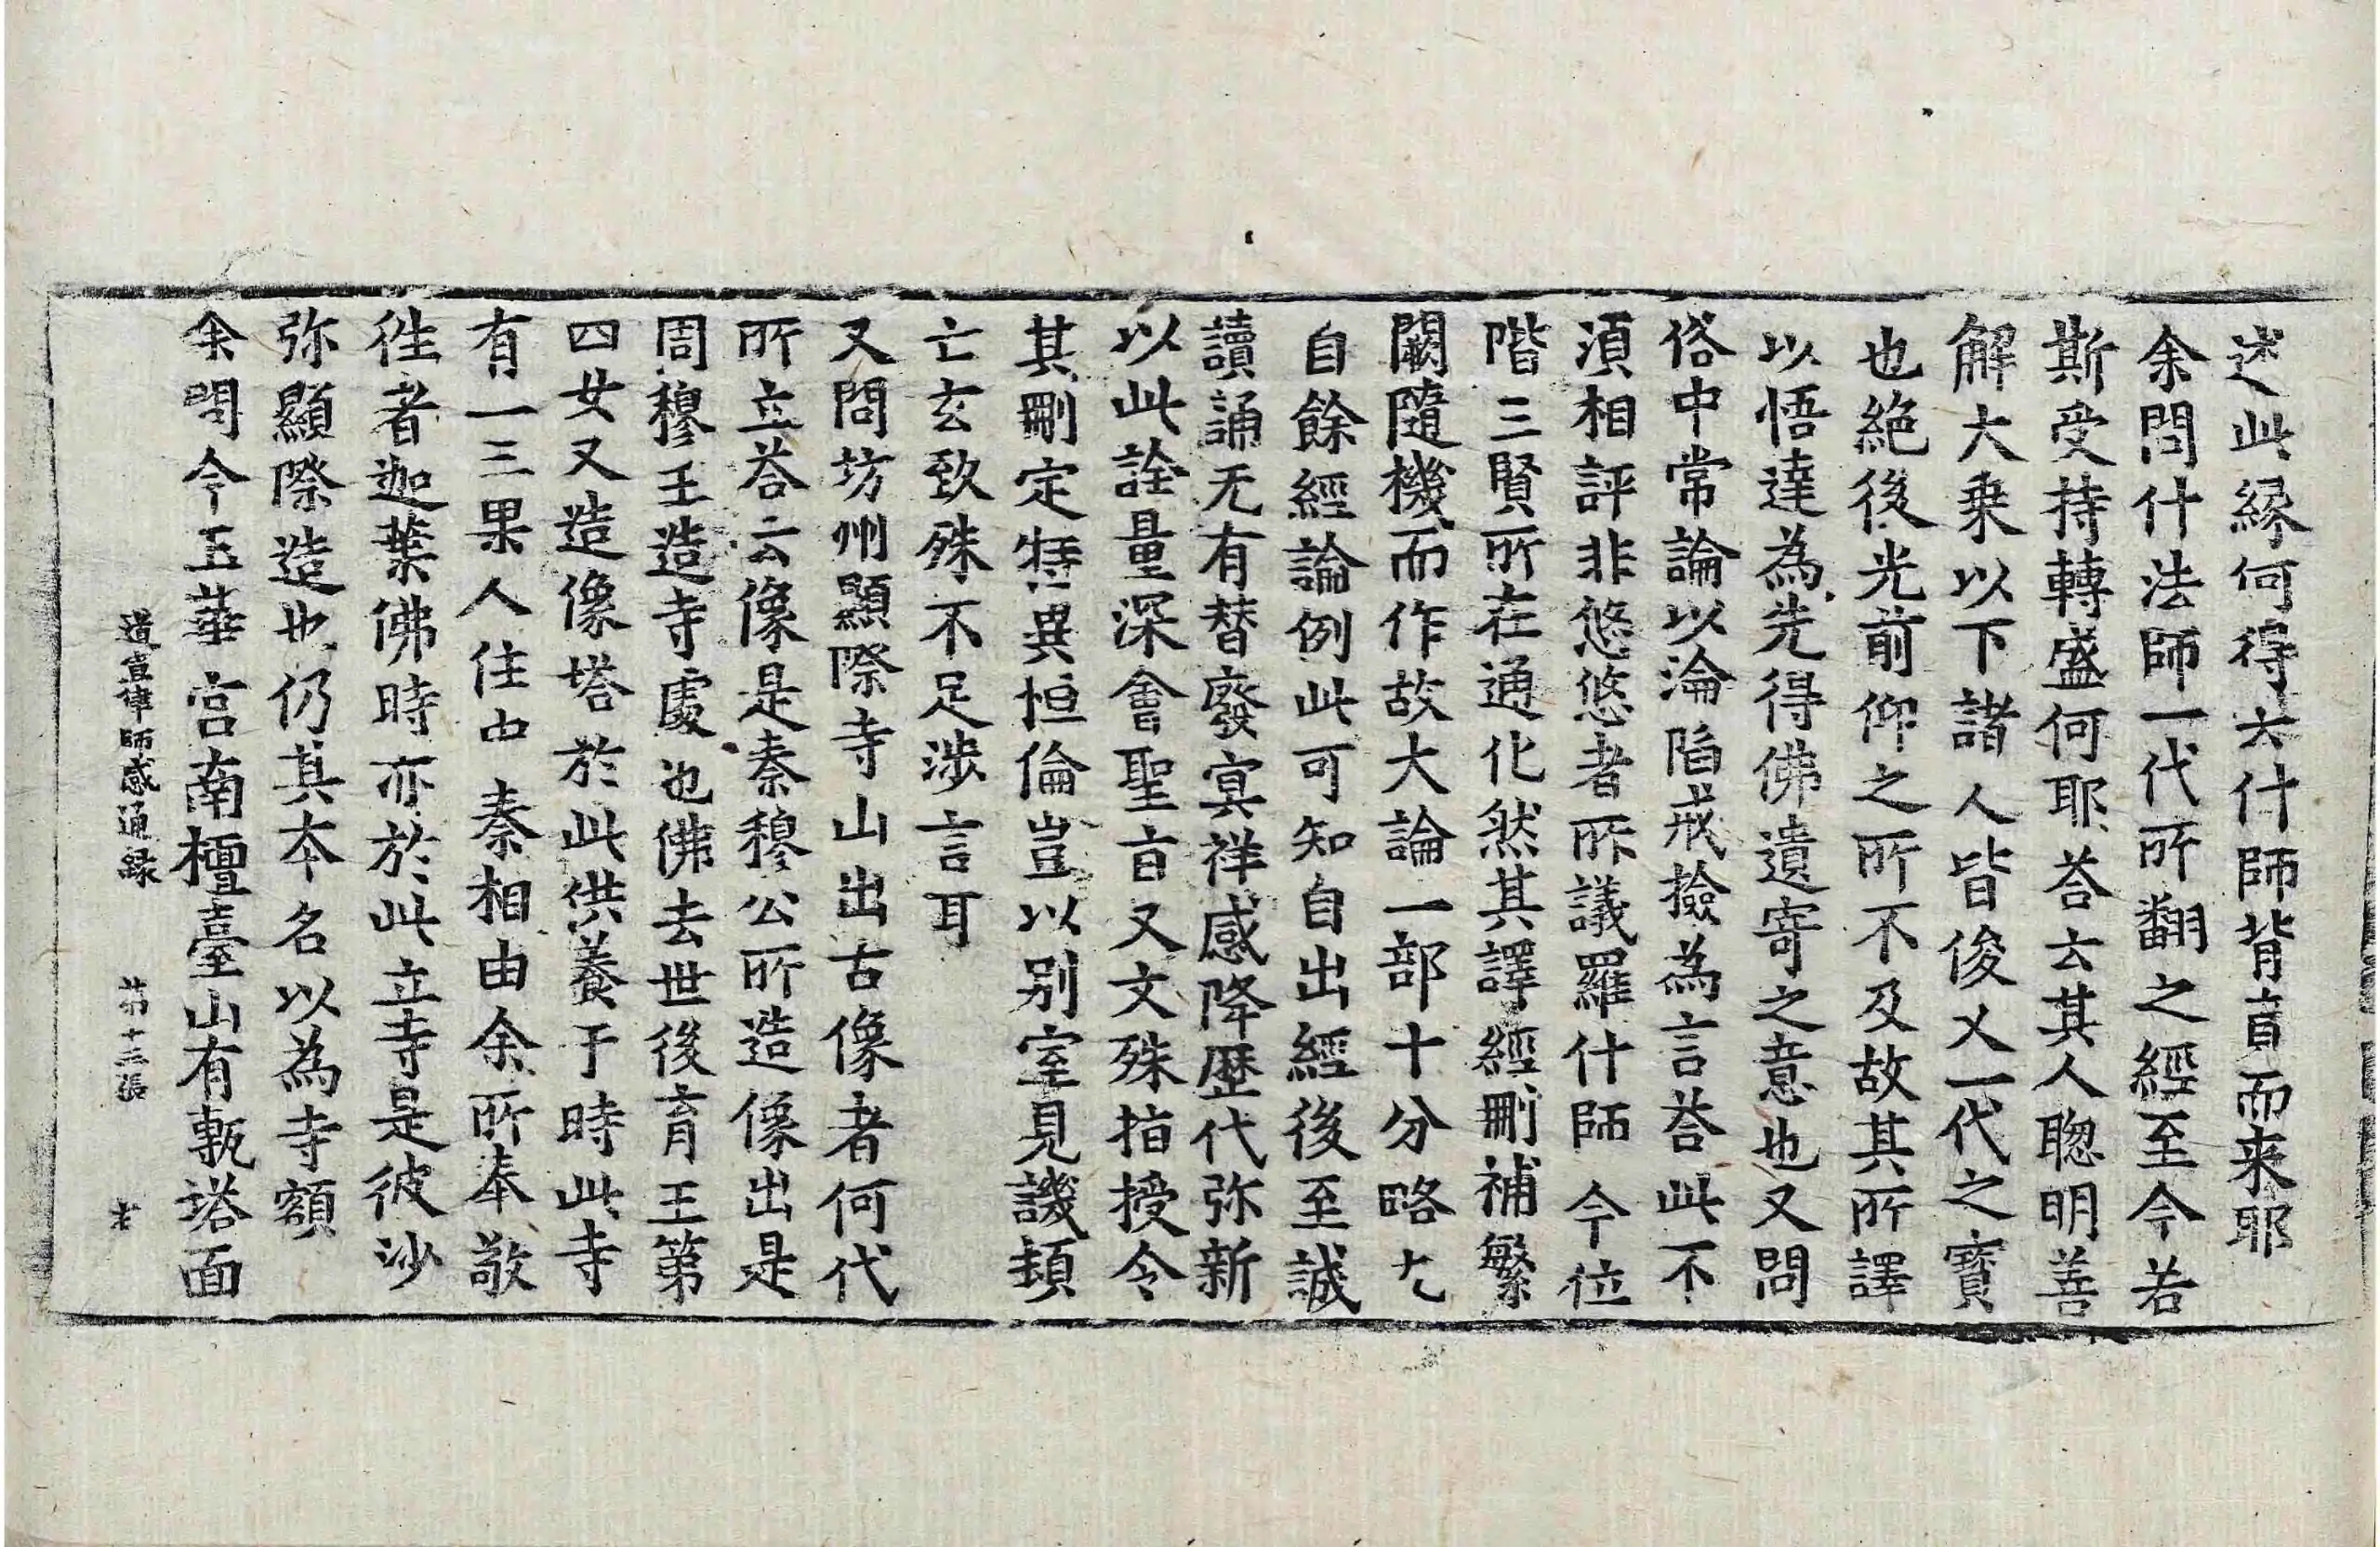 述此緣何得云什師背盲而来耶
余問什法師一代所翻之經至今若
斯受持轉盛何耶荅云其人聦明善
解大乘以下諸人皆俊乂一代之寳
也絶後光前仰之所不及故其所譯
以悟達為先得佛遺寄之意也又問
俗中常論以淪陷戒撿為言荅此不
湏相評非悠悠者所議羅什師今位
階三賢所在通化然其譯經刪補繁
闕隨機而作故大論一部十分略九
自餘經論例此可知自出經後至誠
讀誦无有替廢㝠祥感降歷代弥新
以此詮量深會聖旨又文殊指授令
其刪定特異恒倫豈以別室見譏頓
亡玄致殊不足涉言耳
又問坊州顯際寺山出古像者何代
所立荅云像是秦穆公所造像出是
周穆王造寺處也佛去世後育王第
四女又造像塔於此供養于時此寺
有一三果人住中秦相由余所奉敬
徃者迦葉佛時亦於此立寺是彼沙
弥顯際造也仍其本名以為寺額
余問今玉華宮南檀臺山有甎塔面
道宣律師感通録 第十三張